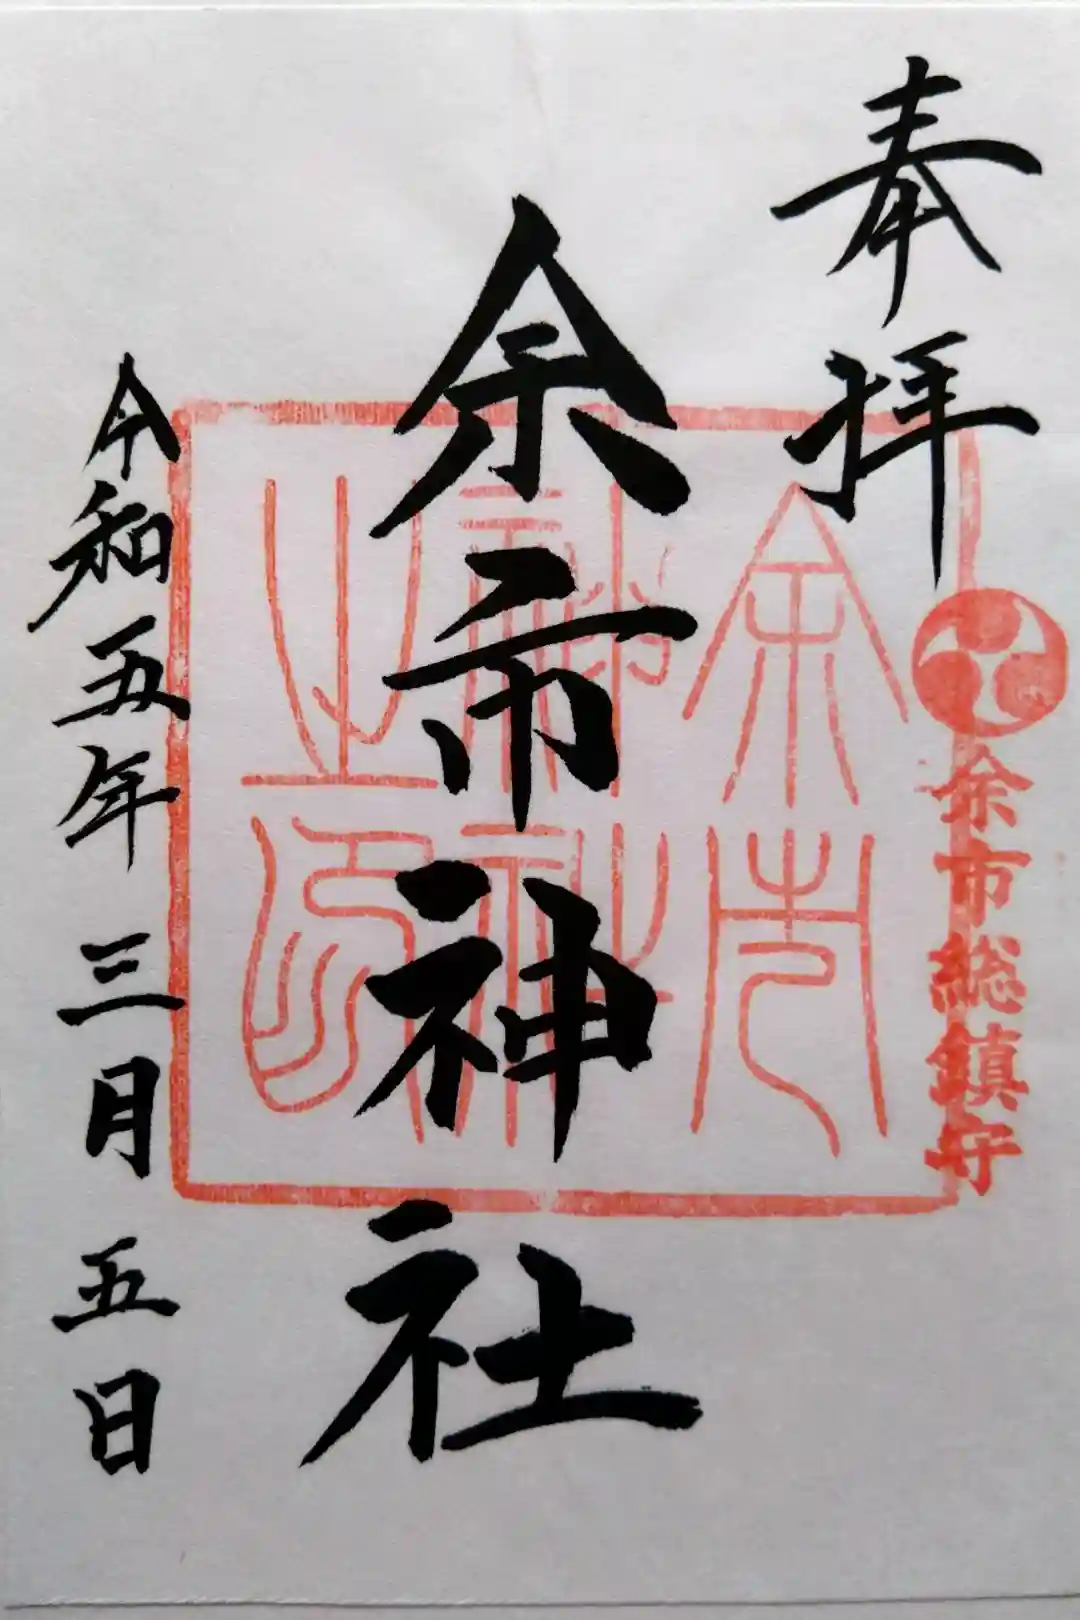 奉拝
余市総鎮守
余市神社
余市神社之印
令和五年三月五日